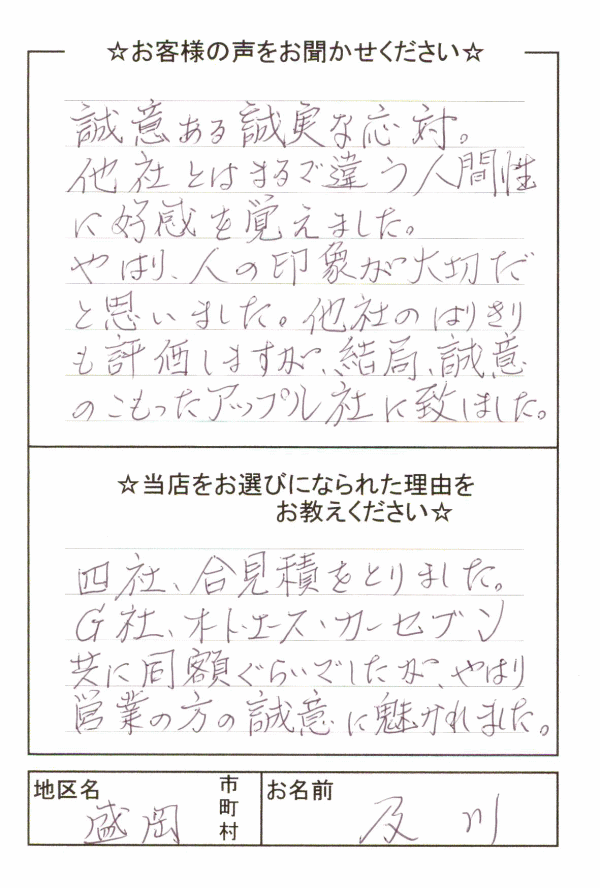 ☆お客様の声をお聞かせください☆
誠意ある誠実な応対。
他社とはまるで違う人間性
に好感を覚えました。
やはり、人の印象が大切だ
と思いました。他社のはりきり
も評価しますが、結局、誠意
のこもったアップル社に致しました。
☆当店をお選びになられた理由を
お教えください☆
四社、合見積をとりました。
G社、オートエース・カーセブン
共に同額ぐらいでしたが、やはり
営業の方の誠意に魅かれました。
地区名 盛岡 市町村 お名前 及川